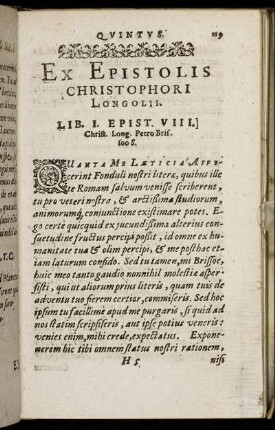 QVINTVS. 119
EX EPISTOLIS
CHRISTOPHORI
LONGOLII.
LIB. I. EPIST. VIII.]
Christ. Long. Petro Bris-
soo S.
QVANTA ME LÆTICIA AFFE-
cerint Fonduli nostri literæ, quibus ille
te Romam salvum venisse scriberent,
tu pro veteri nostra, & arctissima studiorum,
animorumq́; conjunctione existimare potes. E-
go certè quicquid ex jucundissima alterius con-
suetudine fructus percipi possit, id omne ex hu-
manitate tua & olim percepi, & me posthac et-
iam laturum confido. Sed tu tamen, mi Brissoe,
huic meo tanto gaudio nonnihil molestiæ asper-
sisti, qui ut aliorum prius literis, quam tuis de
adventu tuo fierem certior, commiseris. Sed hoc
ipsum tu facillimè apud me purgaris, si quid ad
nos statim scripseris, aut ipse potius veneris:
venies enim, mihi crede, expectatus. Expone-
rem hic tibi omnem status nostri rationem,
H 5 nisi